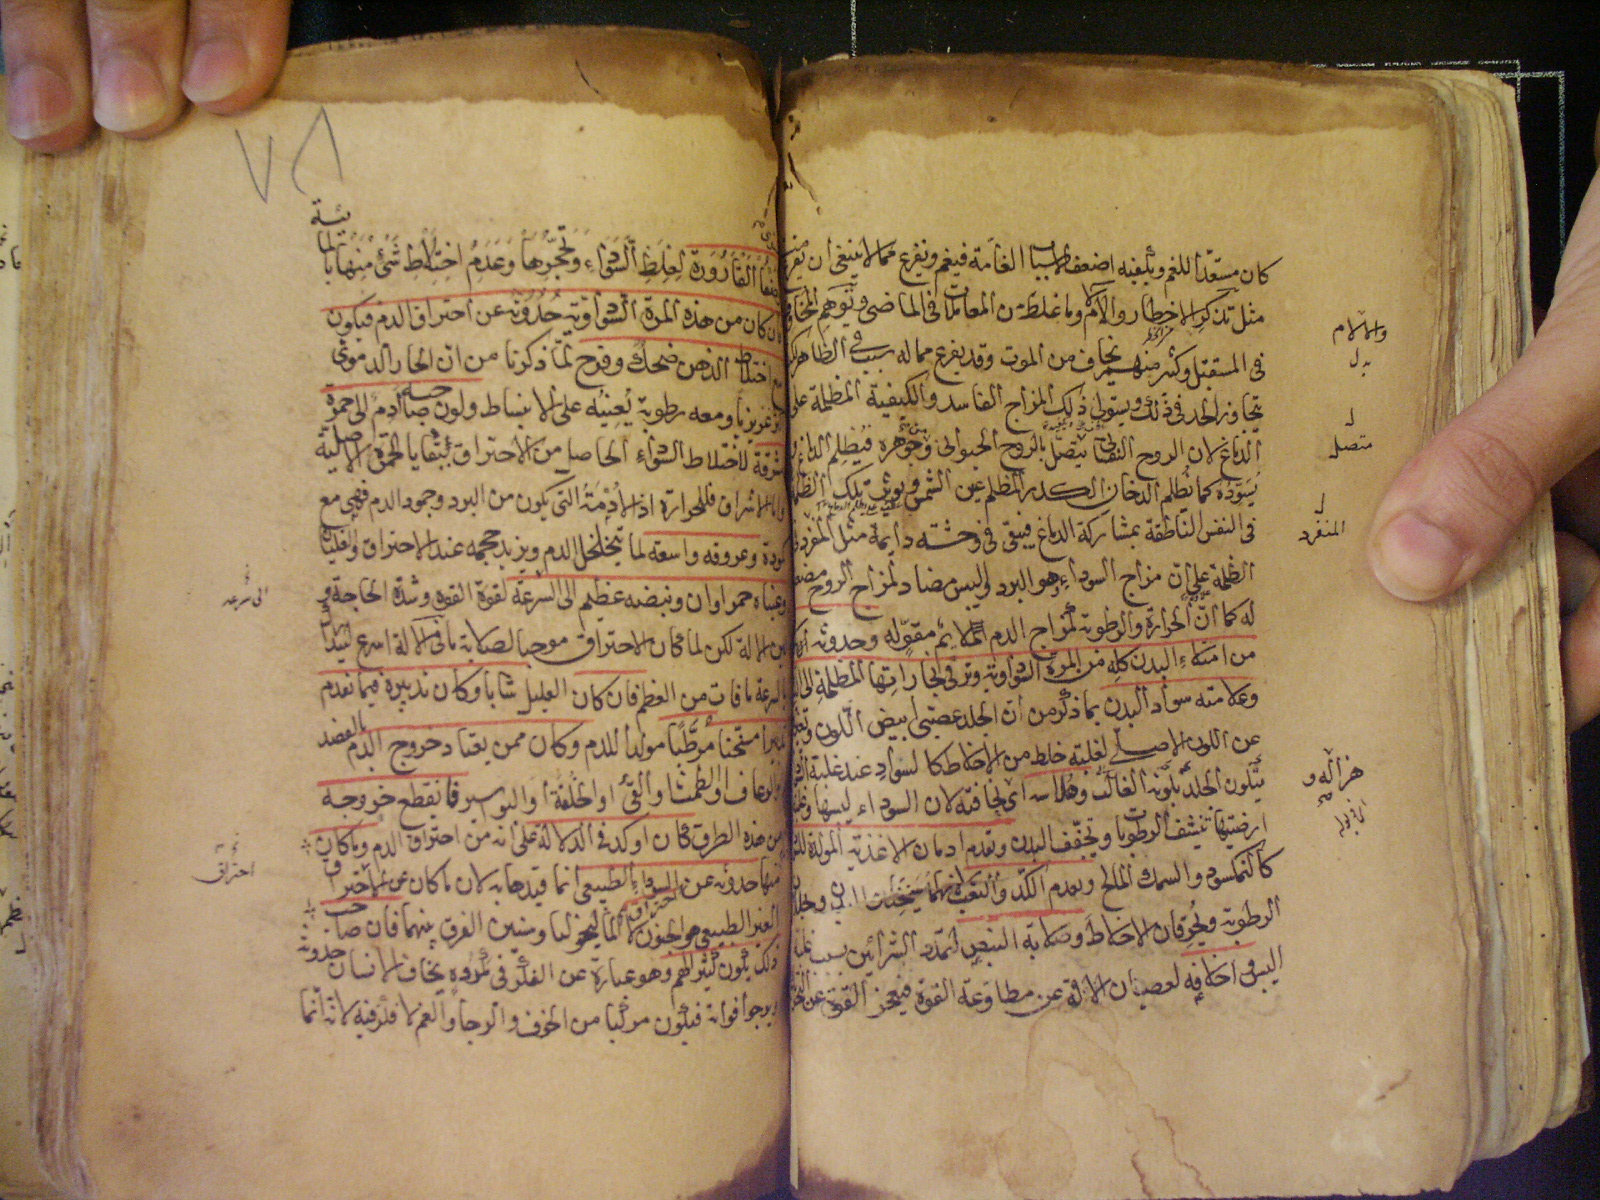 كان مستعدا للغم ويلفيه اضعف الاسباب الغامة فيغم ويفزع مما لا ينبغى ان يفزع منه
مثل تذكر الاخطار والآلام وما غلط من المعاملات فى الماضى وتوهم المخاوف
فى المستقبل وكثير منهم يخاف من الموت وقد يفزع مما له سبب فى الظاهر لكن
يتجاوز الحد فى ذلك ويستولى ذلك المزاج الفاسد والكيفية المظلمة على
الدماغ لان الروح النفسانى يتصل بالروح الحيوانى وجوهره فيظلم الدماغ
يسوده كما تظلم الدخان الكدر المظلم عين الشمس ويؤثر تلك الظلمة
فى النفس الناطقة بمشاركة الدماغ فيبقى فى وحشة دايمة مثل المفرد فى
الظلمة على ان مزاج السوداء وهو البرد واليبس مضاد لمزاج الروح مضعف
له كما ان الحرارة والرطوبة لمزاج الدم الملايم مقو له وحدوثه
من امتلاء البدن كله من المرة السوداوية وترقى بخاراتها المظلمة الى
وعلامته سواد البدن بما ذكر من ان الجلد عصبى ابيض اللون وتغير
عن اللون الاصلى لغلبة خلط من الاخلاط كالسواد عند غلبة
يتلون الجلد بلون الغالب وهلاسه اى نحافته لان السوداء ليبسها
ارضيتها تنشف الرطوبات وتجفف البدن وتقدم ادمان الاغذية المولدة
كالنمكسود والسمك المالح وتقدم الكد والتعب
الرطوبة ويحرقان الاخلاط وصلابة النبض لتمدد الشرائين بسبب غلبة
اليبس واختلافه لعصيان الآلة عن مطاوعة القوة فيعجز القوة عن
والآلام
بدل
متصل
المنفرد
هزاله و
القارورة لغلظ السوداء وتحجرها وعدم اختلاط شئ منها بالمائية
وان كان من هذه المرة السوداوية حدوثه عن احتراق الدم فيكون
مع اختلاط الذهن ضحك وفرح لما ذكرنا من ان الحار الدموى
غريزيا ومعه رطوبة يعينه على الانبساط ولون صاحبه آدم الى حمرة
مشرقة لاختلاط السوداء الحاصل من الاحتراق ببقايا الحمرة الاصلية
واما الاشراق فللحرارة اذ الادمة التى يكون من البرد وجمود الدم فهى مع
كمودة وعروقه واسعة لما يتخلخل الدم ويزيد حجمه عند الاحتراق والغليان
وعيناه حمراوان ونبضه عظيم الى السرعة لقوة القوة وشدة الحاجة و
لين الآلة لكن لما كان الاحتراق موجبا لصلابة ما فى الآلة اسرع ليتدارك
بالسرعة ما فات من العظم فان كان العليل شابا وكان تدبيره فيما تقدم
تدبيرا مسخنا مرطبا مولدا للدم وكان ممن يعتاد خروج الدم بالفصد
او الرعاف او الطمث او القئ او الخلفة او البواسير فانقطع خروجه
من هذه الطرق كان اوكد فى الدلالة على انه من احتراق الدم وما كان
منها حدوثه عن السوداء الطبيعى انما قيد بها به لان ما كان عن احتراق
الغير الطبيعى هو الجنون لا الماليخوليا وسنبين الفرق بينهما فان صاحب
ذلك يكون كثير الهم وهو عبارة عن الفكر فى مكروه يخاف الانسان حدوثه
ويرجوا فواته فيكون مركبا من الخوف والرجا والغم لا فكر فيه لانه انما
الى سرعة
احتراق